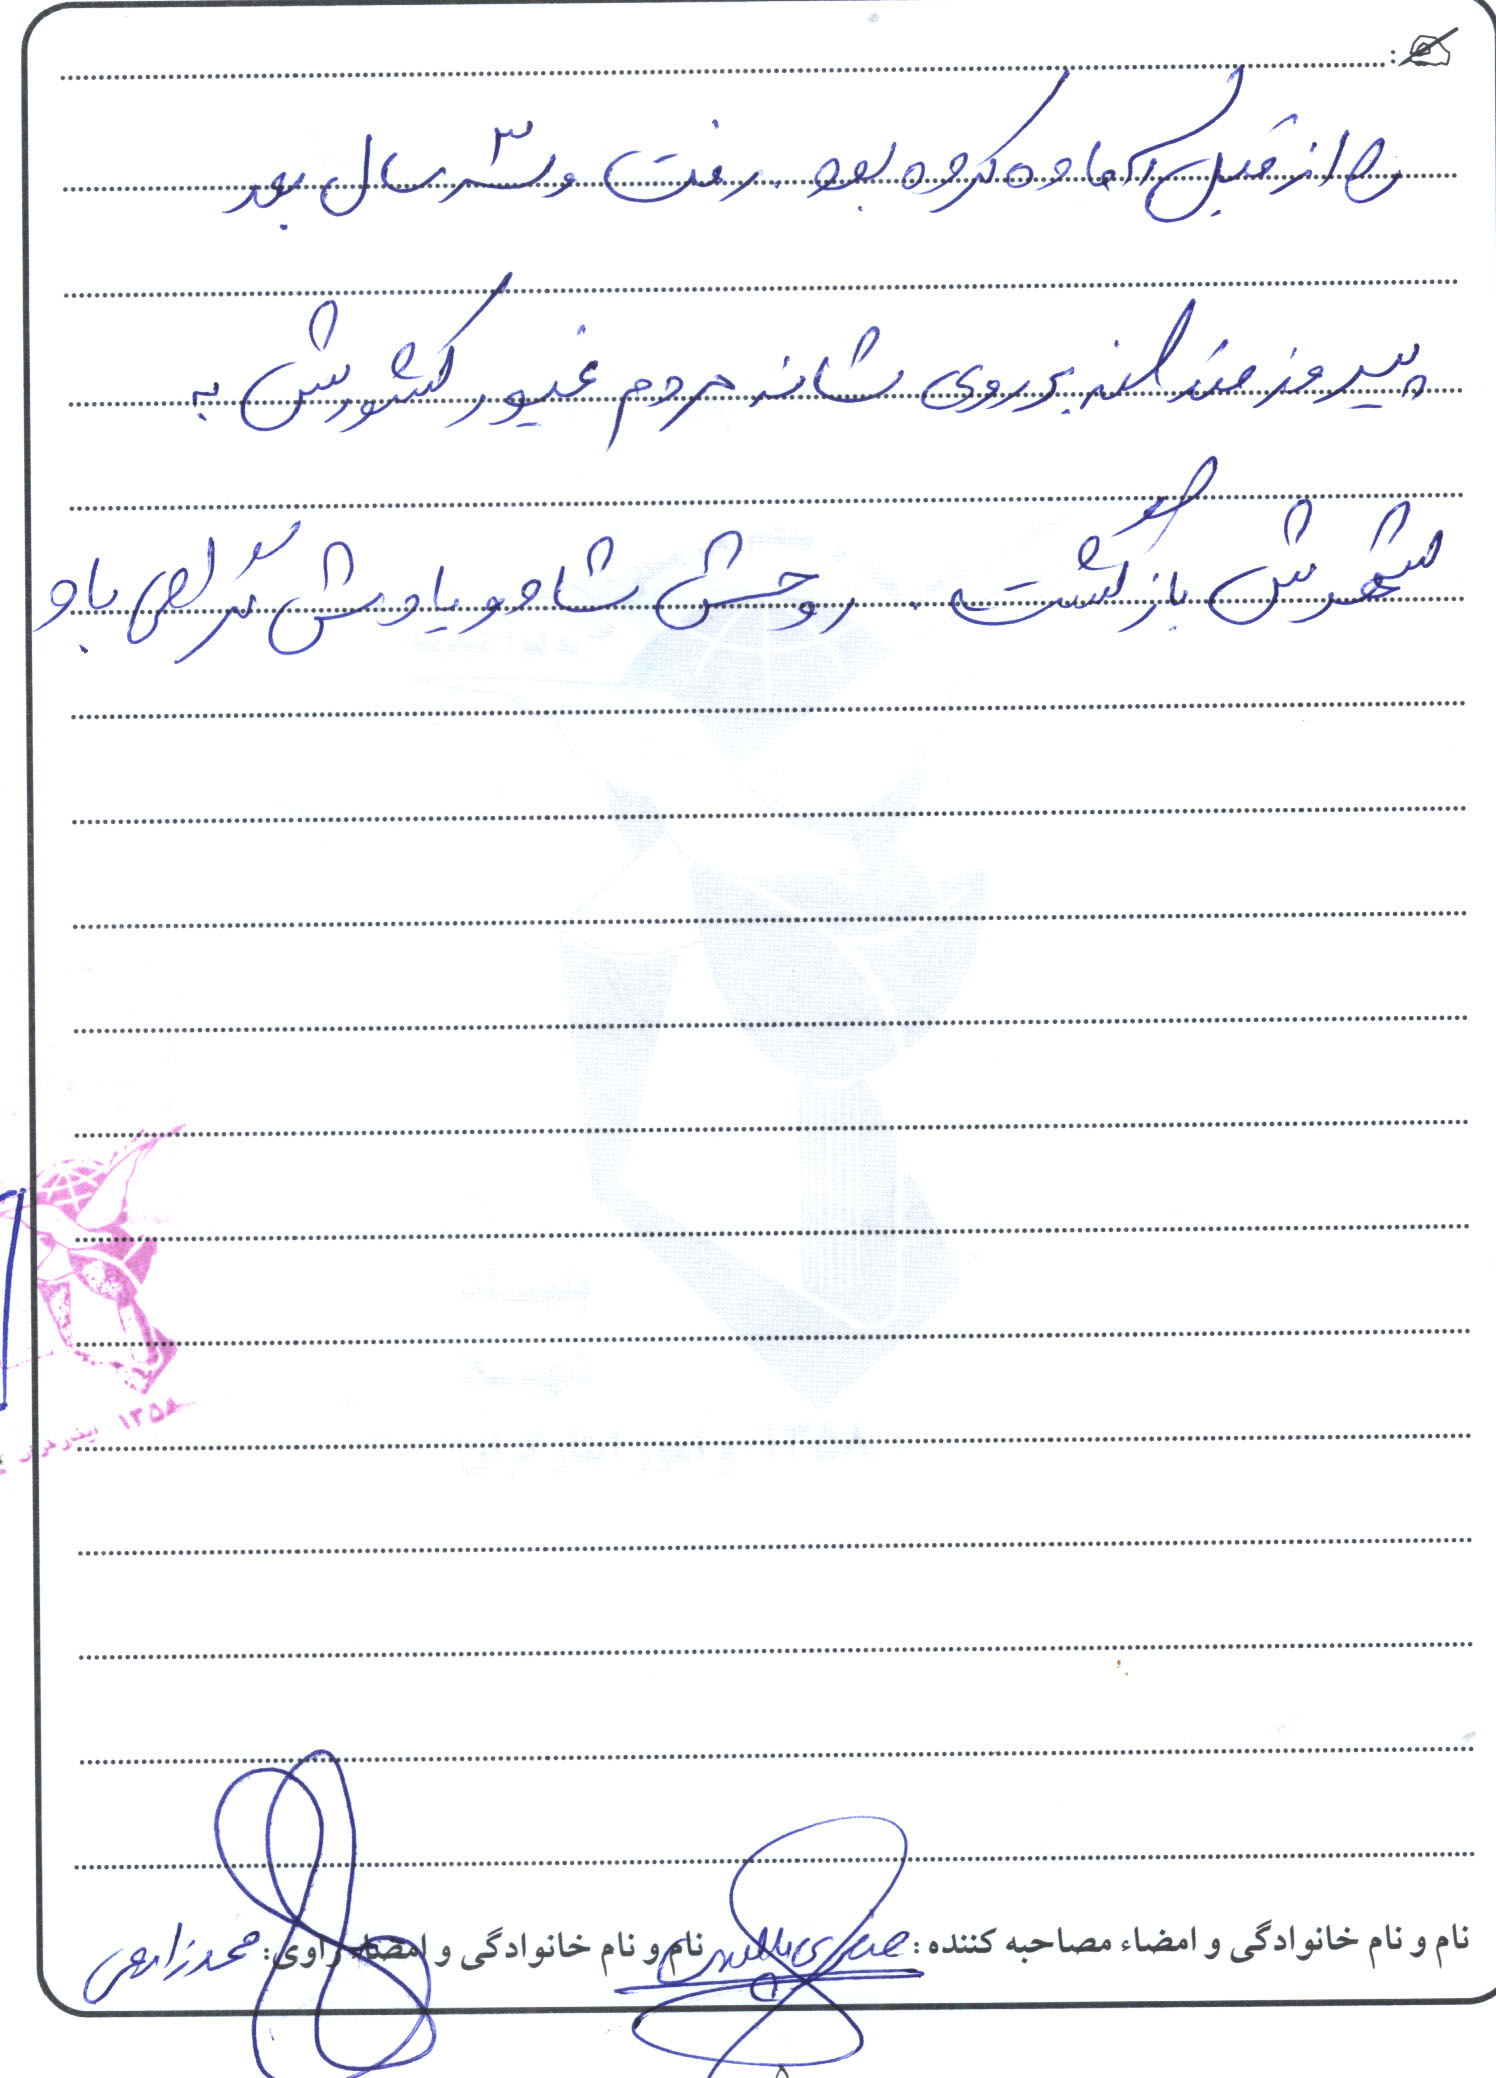 را از قبل آماده کرده بود. رفت و سه ۳ سال بعد
پیروزمندانه بر روی شانه مردم غیور کشورش به
شهرش بازگشت. روحش شاد و یادش گرامی باد
۱۳۵۸
نام و نام خانوادگی و امضاء مصاحبه کننده:
نام و نام خانوادگی و امضاء راوی: محمد زارعی